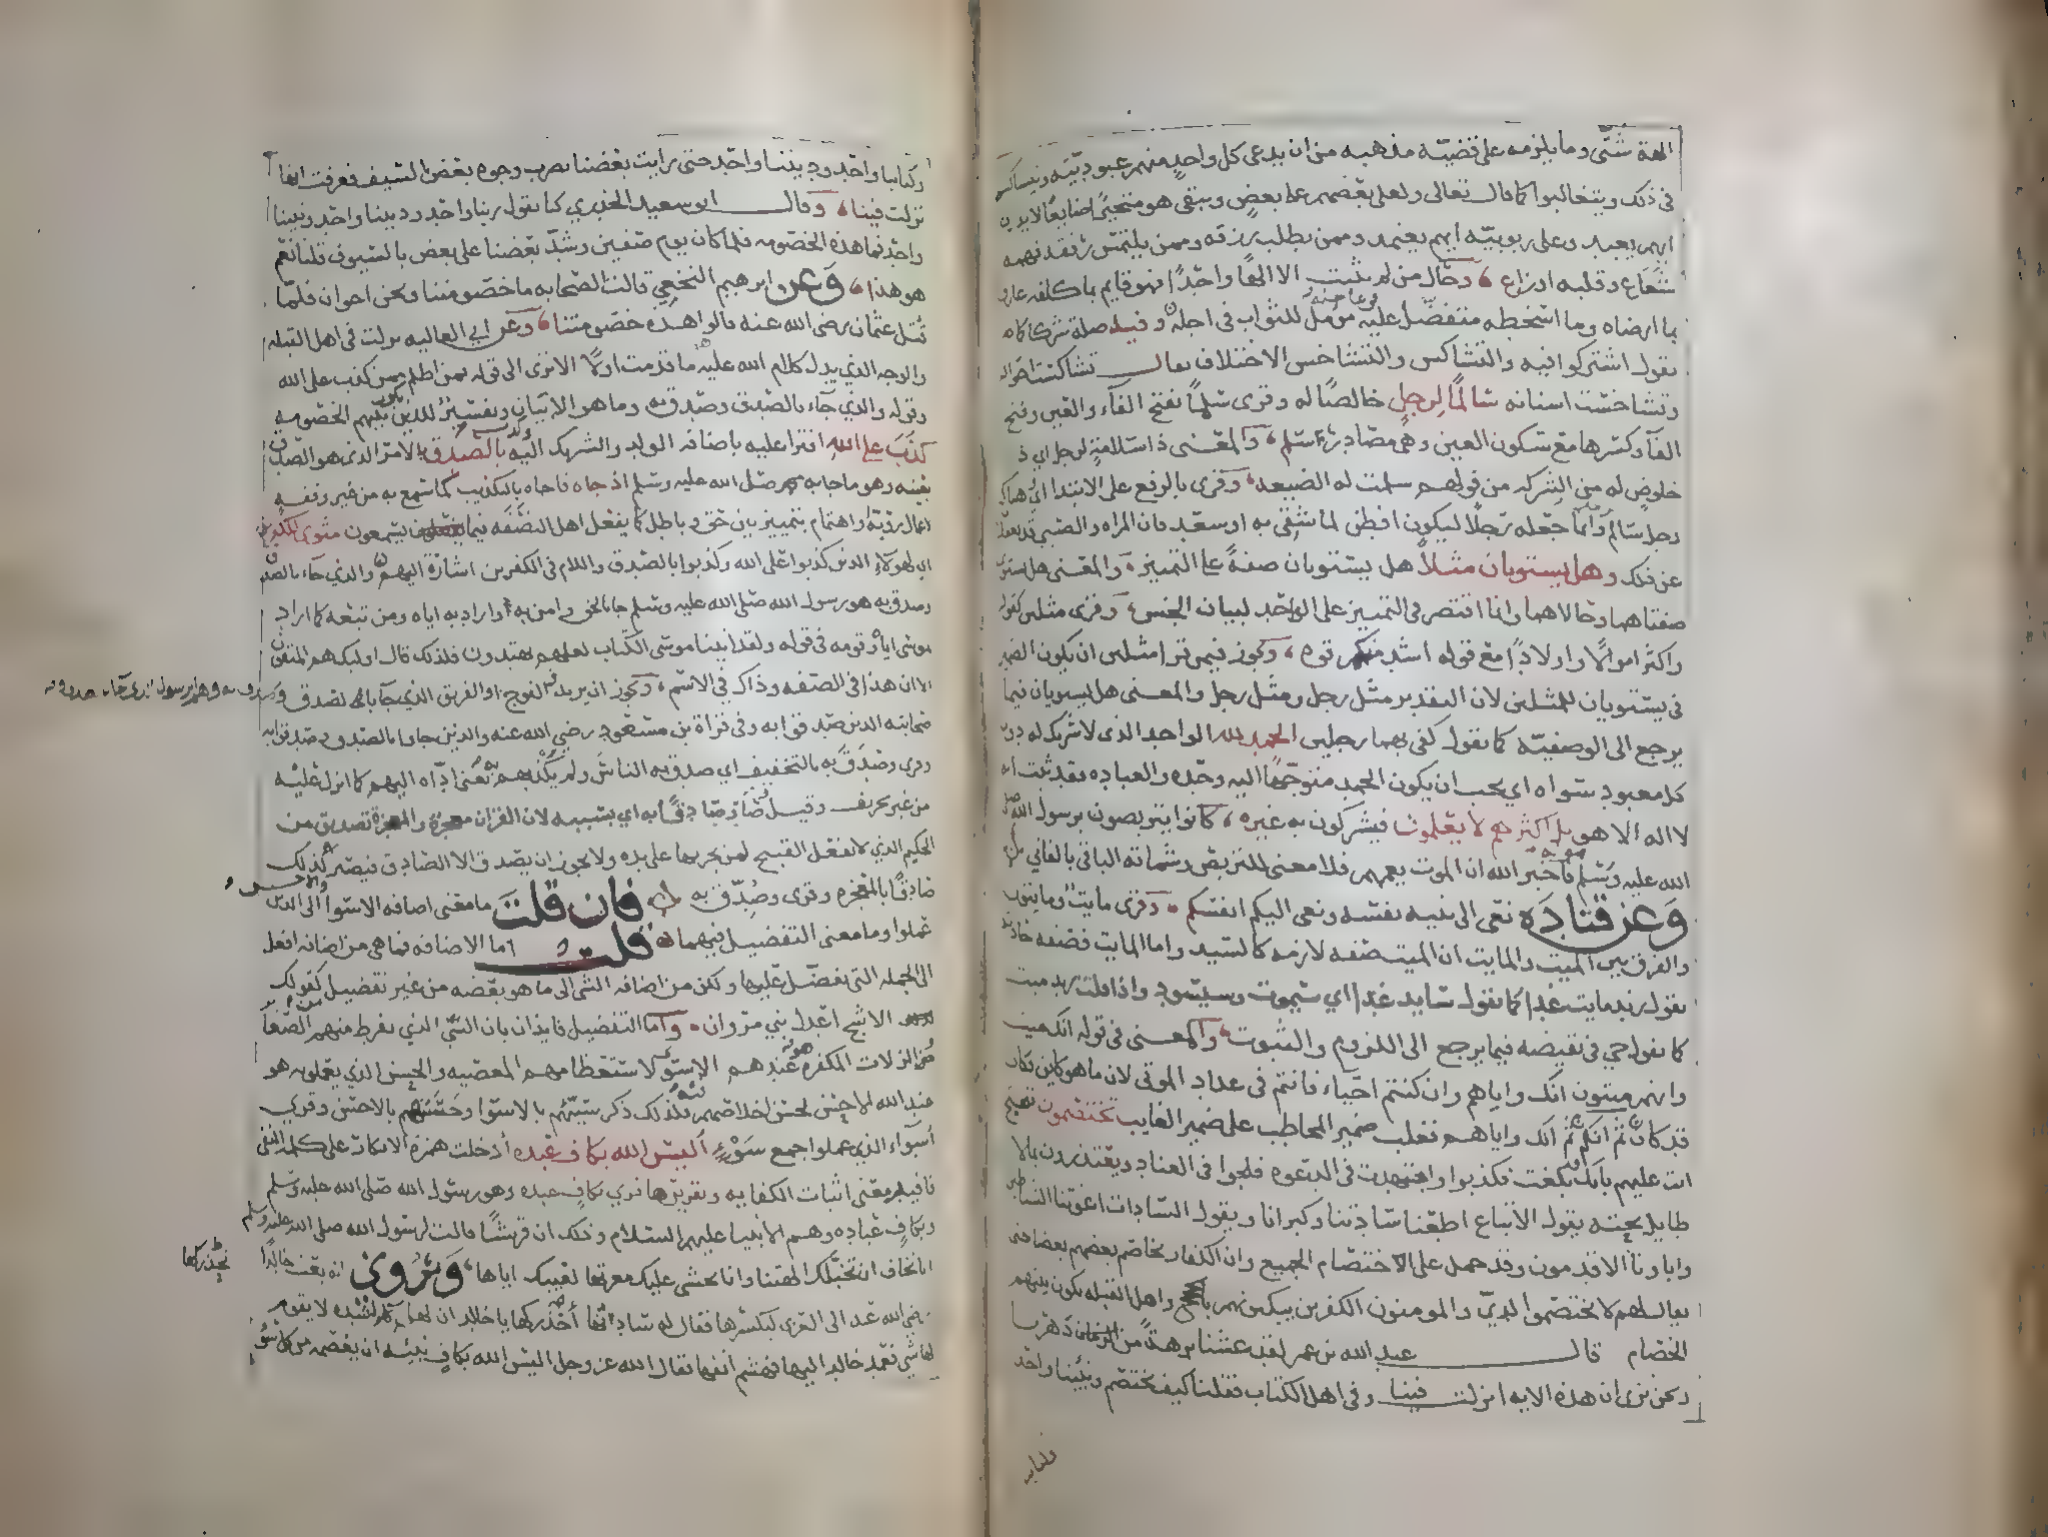 الهة شتى وما يلزمه على قضية مذهبه من ان يدعى كل واحد منهم عبوديته ويتشاكسوا
فى ذلك ويتغالبوا كما قال تعالى ولعلى بعضهم على بعض ويبقى هو متحيرا ضايعا لا يدرى
ايهم يعبد وعلى ربوبية ايهم يعتمد وممن يطلب رزقه وممن يلتمس رفقه فهمه
شعاع وقلبه اوزاع وحال من لم يثبت الا الها واحدا فهو قايم بما كلفه عارف
بما ارضاه وما اسخطه متفضل عليه فى عاجله مومل للثواب فى اجله وفيه صلة شركا كما
تقول اشتركوا فيه والتشاكس والتشاخس الاختلاف يقال تشاكست احواله
وتشاخست اسنانه سالما لرجل خالصا له وقرى سلما بفتح الفاء والعين وفتح
الفاء وكسرها مع سكون العين وهى مصادر سلم والمعنى ذا سلامة لرجل اى ذ
خلوص له من الشركة من قولهم سلمت له الضيعة وقرى بالرفع على الابتدا اى هناك
رجل سالم وانما جعله رجلا ليكون افطن لما شقى به او سعد فان المراة والصبى قد يغفلان
عن ذلك وهل يستويان مثلا هل يستويان صفة على التمييز والمعنى هل يستوى
صفتاهما وحالاهما وانما اقتصر فى التمييز على الواحد لبيان الجنس وقرى مثلين كقوله
واكثر اموالا واولادا مع قوله اشد منكم قوة ويجوز فيمن قرا مثلين ان يكون الضمير
فى يستويان للمثلين لان التقدير مثل رجل ومثل رجل والمعنى هل يستويان فيما
يرجع الى الوصفية كما تقول كفى بهما رجلين الحمد لله الواحد الذى لا شريك له دون
كل معبود سواه اى يجب ان يكون الحمد متوجها اليه وحده والعبادة فقد ثبت انه
لا اله الا هو بل اكثرهم لا يعلمون فيشركون به غيره كانوا يتربصون برسول الله صلى
الله عليه وسلم موته فاخبر الله ان الموت يعمهم فلا معنى للتربص وشماتة الباقى بالفانى
وعن قتادة نعى الى نبيه نفسه ونعى اليكم انفسكم وقرى مايت ومايتون
والفرق بين الميت والمايت ان الميت صفة لازمة كالسيد واما المايت فصفة حادثة
تقول زيد مايت غدا كما تقول سايد غدا اى سيموت وسيسود واذا قلت زيد ميت
كما تقول حى فى نقيضه فيما يرجع الى اللزوم والثبوت والمعنى فى قوله انك ميت
وانهم ميتون انك واياهم وان كنتم احياء فانتم فى عداد الموتى لان ما هو كاين فكان
قد كان ثم انكم ثم انك واياهم فغلب ضمير المخاطب على ضمير الغايب تختصمون فتحتج
انت عليهم بانك بلغت فكذبوا واجتهدت فى الدعوة فلجوا فى العناد ويعتذرون بما لا
طايل تحته يقول الاتباع اطعنا سادتنا وكبرانا ويقول السادات اغوتنا الشياطين
واباونا الاقدمون وقد حمل على اختصام الجميع وان الكفار يخاصم بعضهم بعضا حتى
يقال لهم لا تختصموا لدى والمومنون الكفرين يبكتونهم واهل القبلة يكون بينهم
الخصام قال عبد الله بن عمر لقد عشنا برهة من دهرنا
ونحن نرى ان هذه الاية انزلت فينا وفى اهل الكتاب فقلنا كيف نختصم ونبينا واحد
وكتابنا
وكتابنا واحد وديننا واحد حتى رايت بعضنا يضرب وجوه بعض بالسيف فعرفت انها
نزلت فينا وقال ابو سعيد الخدرى كنا نقول ربنا واحد وديننا واحد ونبينا
واحد فما هذه الخصومة فلما كان يوم صفين وشد بعضنا على بعض بالسيوف قلنا نعم
هو هذا وعن ابرهيم النخعى قالت الصحابة ما خصومتنا ونحن اخوان فلما
قتل عثمان رضى الله عنه قالوا هذه خصومتنا وعن ابى العالية نزلت فى اهل القبلة
والوجه الذى يدل كلام الله عليه ما قدمت اولا الا ترى الى قوله فمن اظلم ممن كذب على الله
وقوله والذى جاء بالصدق وصدق به وما هو الا بيان وتفسير للذين تكون بينهم الخصومة
كذب على الله افترا عليه باضافة الولد والشريك اليه وكذب بالصدق بالامر الذى هو الصدق
بعينه وهو ما جا به محمد صلى الله عليه وسلم اذ جاه فاجاه بالتكذيب كما سمع به من غير وقفة
اعمال روية واهتمام بتمييز بين حق وباطل كما يفعل اهل النصفة فيما يسمعون مثوى للكفرين
اى لهولاء الذين كذبوا على الله وكذبوا بالصدق واللام فى الكفرين اشارة اليهم والذى جاء بالصدق
وصدق به هو رسول الله صلى الله عليه وسلم جا بالحق وامن به واراد به اياه ومن تبعه كما اراد
بموسى اياه وقومه فى قوله ولقد اتينا موسى الكتاب لعلهم يهتدون فلذلك قال اوليك هم المتقون
الا ان هذا فى الصفة وذاك فى الاسم ويجوز ان يريد الفوج او الفريق الذى جا بالصدق وصدق به وهم الرسول الذى جاء بالصدق و
صحابته الذين صدقوا به وفى قراة بن مسعود رضى الله عنه والذين جاوا بالصدق وصدقوا به
وقرى وصدق به بالتخفيف اى صدق به الناس ولم يكذبهم به يعنى اداه اليهم كما انزل عليه
من غير تحريف وقيل صار صادقا به اى بسببه لان القران معجزة والمعجزة تصديق من
الحكيم الذى لا يفعل القبيح لمن يجريها على يده ولا يجوز ان يصدق الا الصادق فيصير لذلك
صادقا بالمعجزة وقرى وصدق به فان قلت ما معنى اضافة الاسوا والاحسن الى الذى
عملوا وما معنى التفضيل فيهما قلت اما الاضافة فما هى من اضافة افعل
الى الجملة التى يفضل عليها ولكن من اضافة الشى الى ما هو بعضه من غير تفضيل كقولك
الاشج اعدل بنى مروان واما التفضيل فايذان بان السيئ الذى يفرط منهم من الصغاير
والزلات المكفرة هو عندهم الاسوا لاستعظامهم المعصية والحسن الذى يعملونه هو
عند الله الاحسن لحسن اخلاصهم فيه فلذلك ذكر سيئهم بالاسوا وحسنهم بالاحسن وقرى
أسواء الذى عملوا جمع سوء أليس الله بكاف عبده أدخلت همزة الانكار على كلمة النفى
فافيد معنى اثبات الكفاية وتقريرها قرى بكاف عبده وهو رسول الله صلى الله عليه وسلم
وبكاف عباده وهم الانبيا عليهم السلام وذلك ان قريشا قالت لرسول الله صلى الله عليه وسلم
انا نخاف ان تخبلك الهتنا وانا نخشى عليك معرتها لعيبك اياها ويروى انه بعث خالدا
رضى الله عنه الى العزى ليكسرها فقال له سادنها أحذركها يا خالد ان لها لشدة لا يقوم
لها شى فعمد خالد اليها فهشم انفها فقال الله عز وجل اليس الله بكاف نبيه ان يعصمه من كل سوء